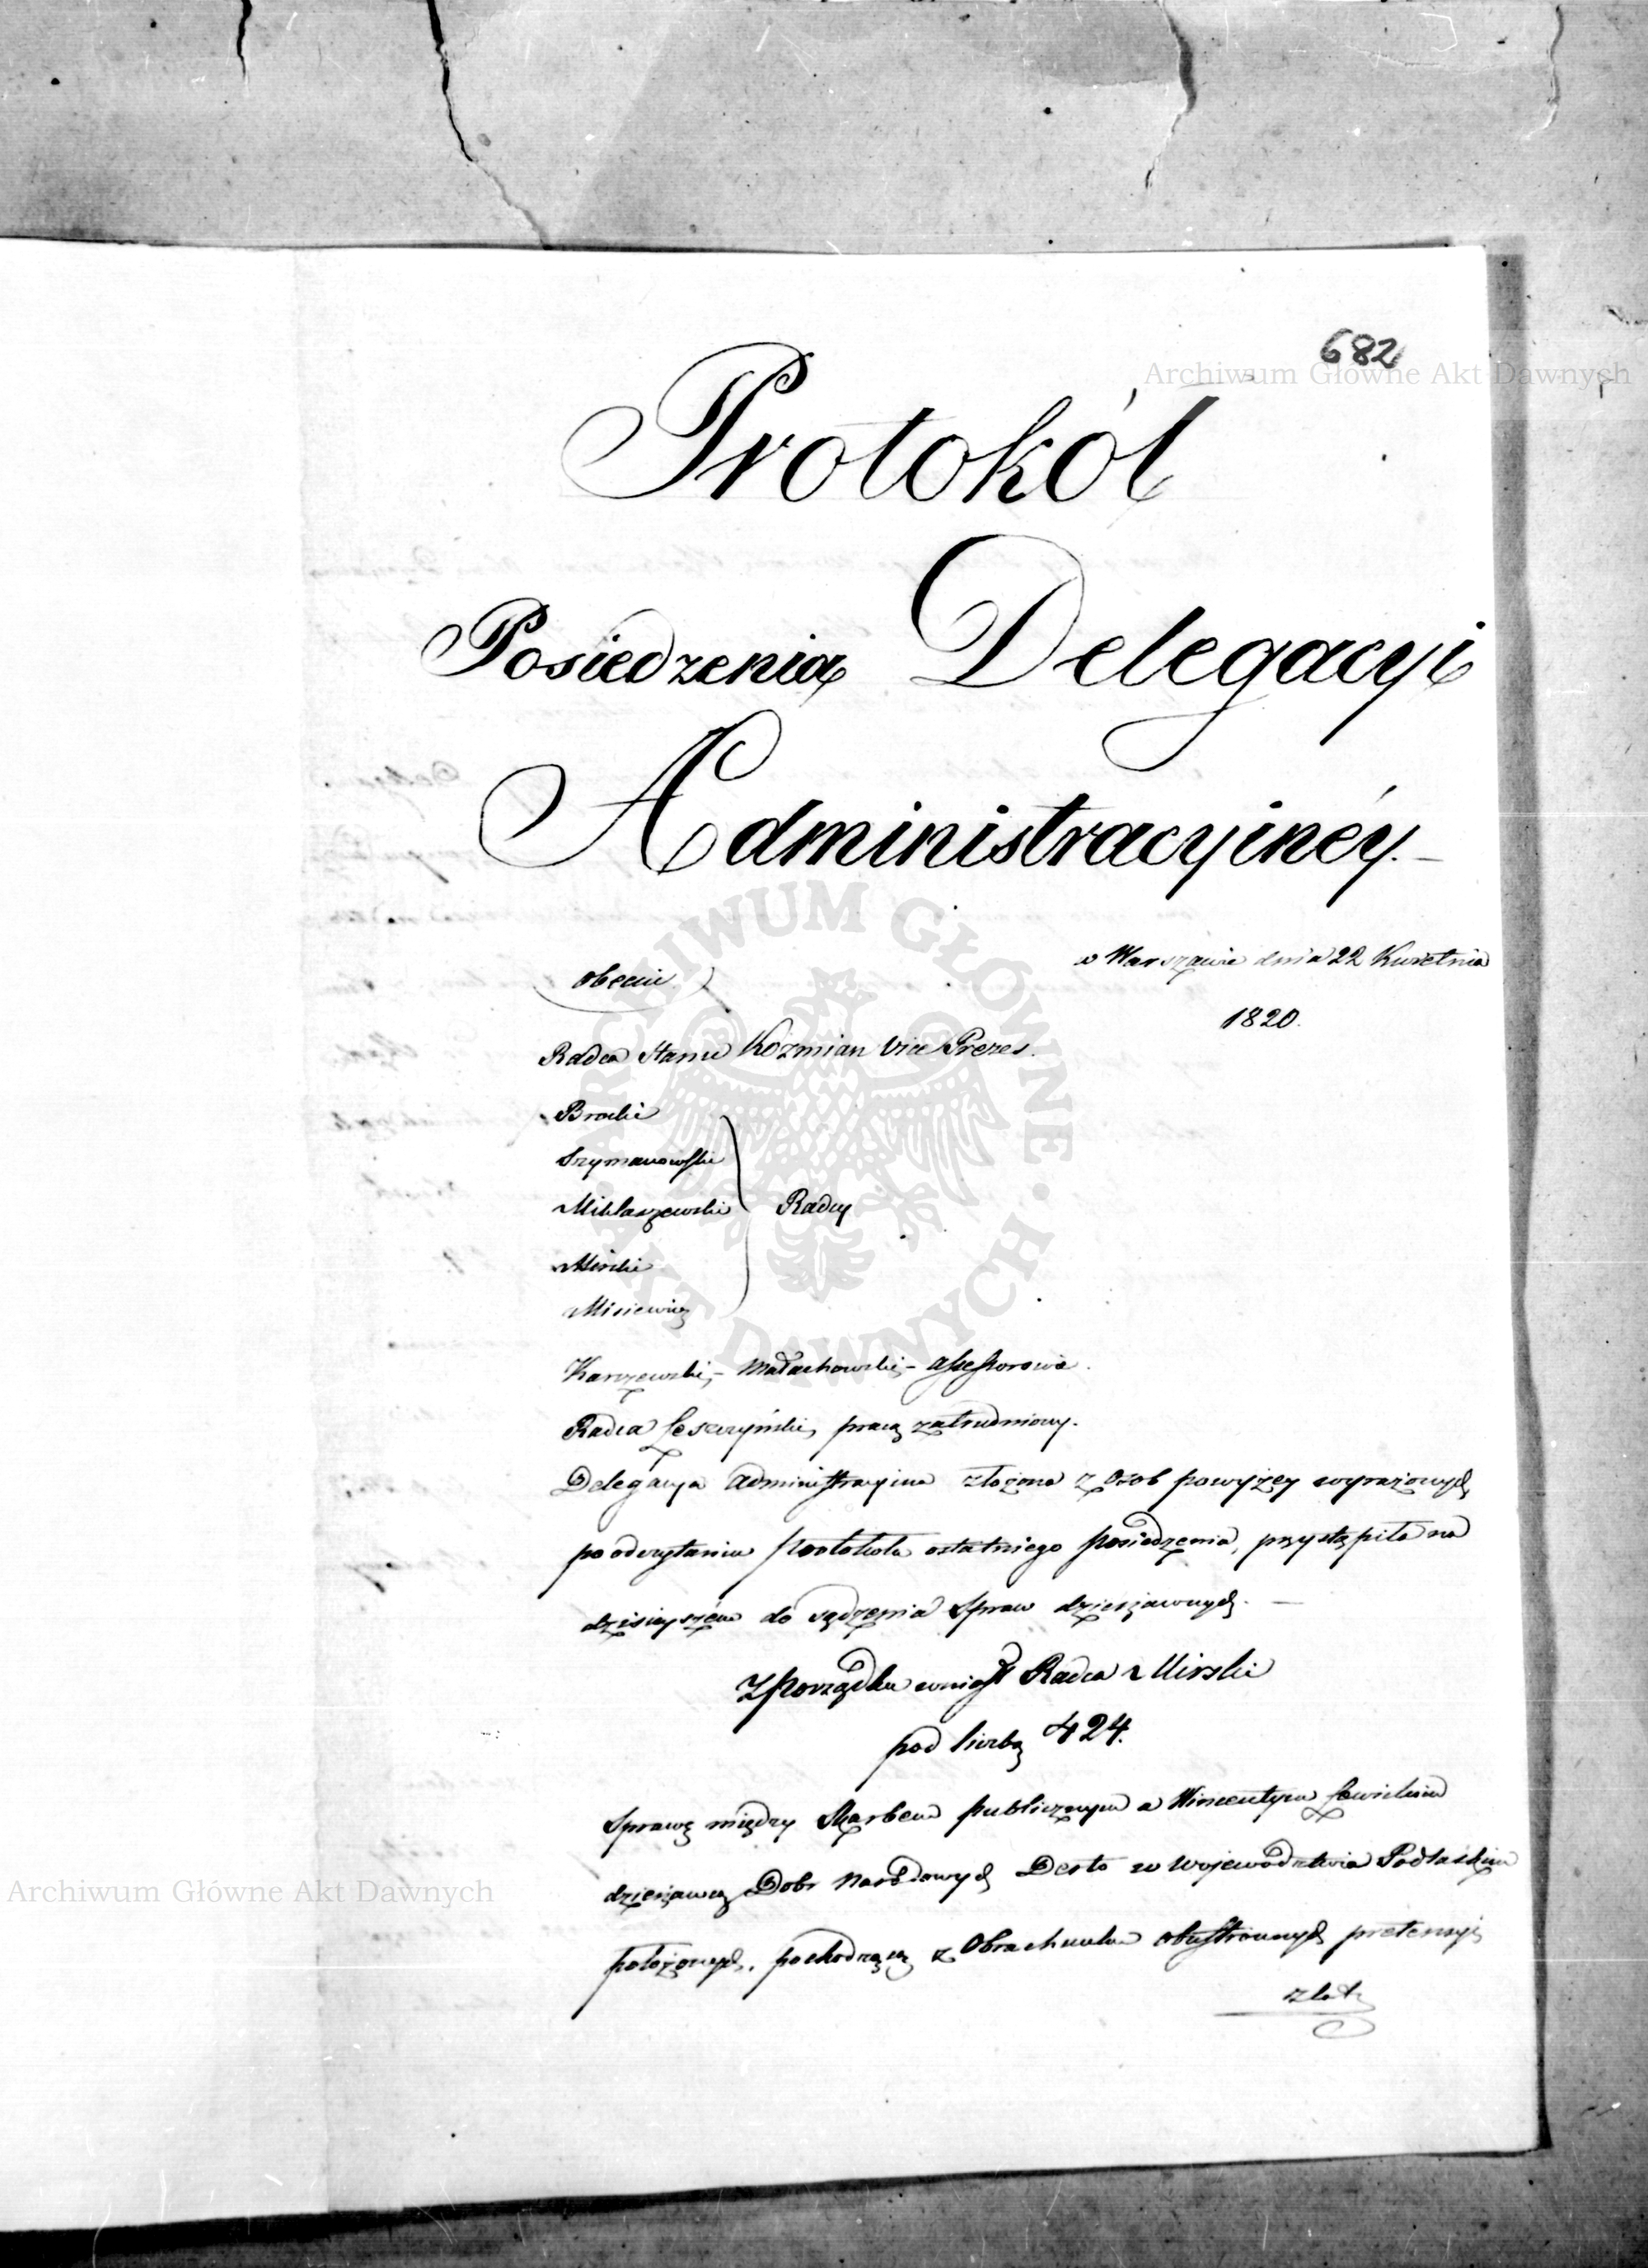 682
Archiwum Główne Akt Dawnych
Protokół
Posiedzenia Delegacyi
Administracyinéy.
w Warszawie dnia 22 Kwietnia
1820.
obecni
Radca Stanu Koźmian Vice Prezes.
Brocki
Szymanowski
Miklaszewski Radcy
Mirski
Misiewicz
Karczewski, - Małachowski, - Assessorowie.
Radca Leszczyński, pracą zatrudniony.
Delegacya Administracyina złożona z Osob powyżey wyrażonych,
po odczytaniu protokołu ostatniego posiedzenia, przystąpiła na
dzisieyszém do sądzenia Spraw dzierżawnych. —
Z porządku wniosł Radca Mirski
pod liczbą 424.
Sprawę między Skarbem publicznym a Wincentym Lewickim
dzierżawcą Dobr Narodowych w Województwie Podlaskim
położonych, pochodzącą z Obrachunku obustronnych pretensyi
ARCHIWUM GŁÓWNE AKT DAWNYCH
Archiwum Główne Akt Dawnych